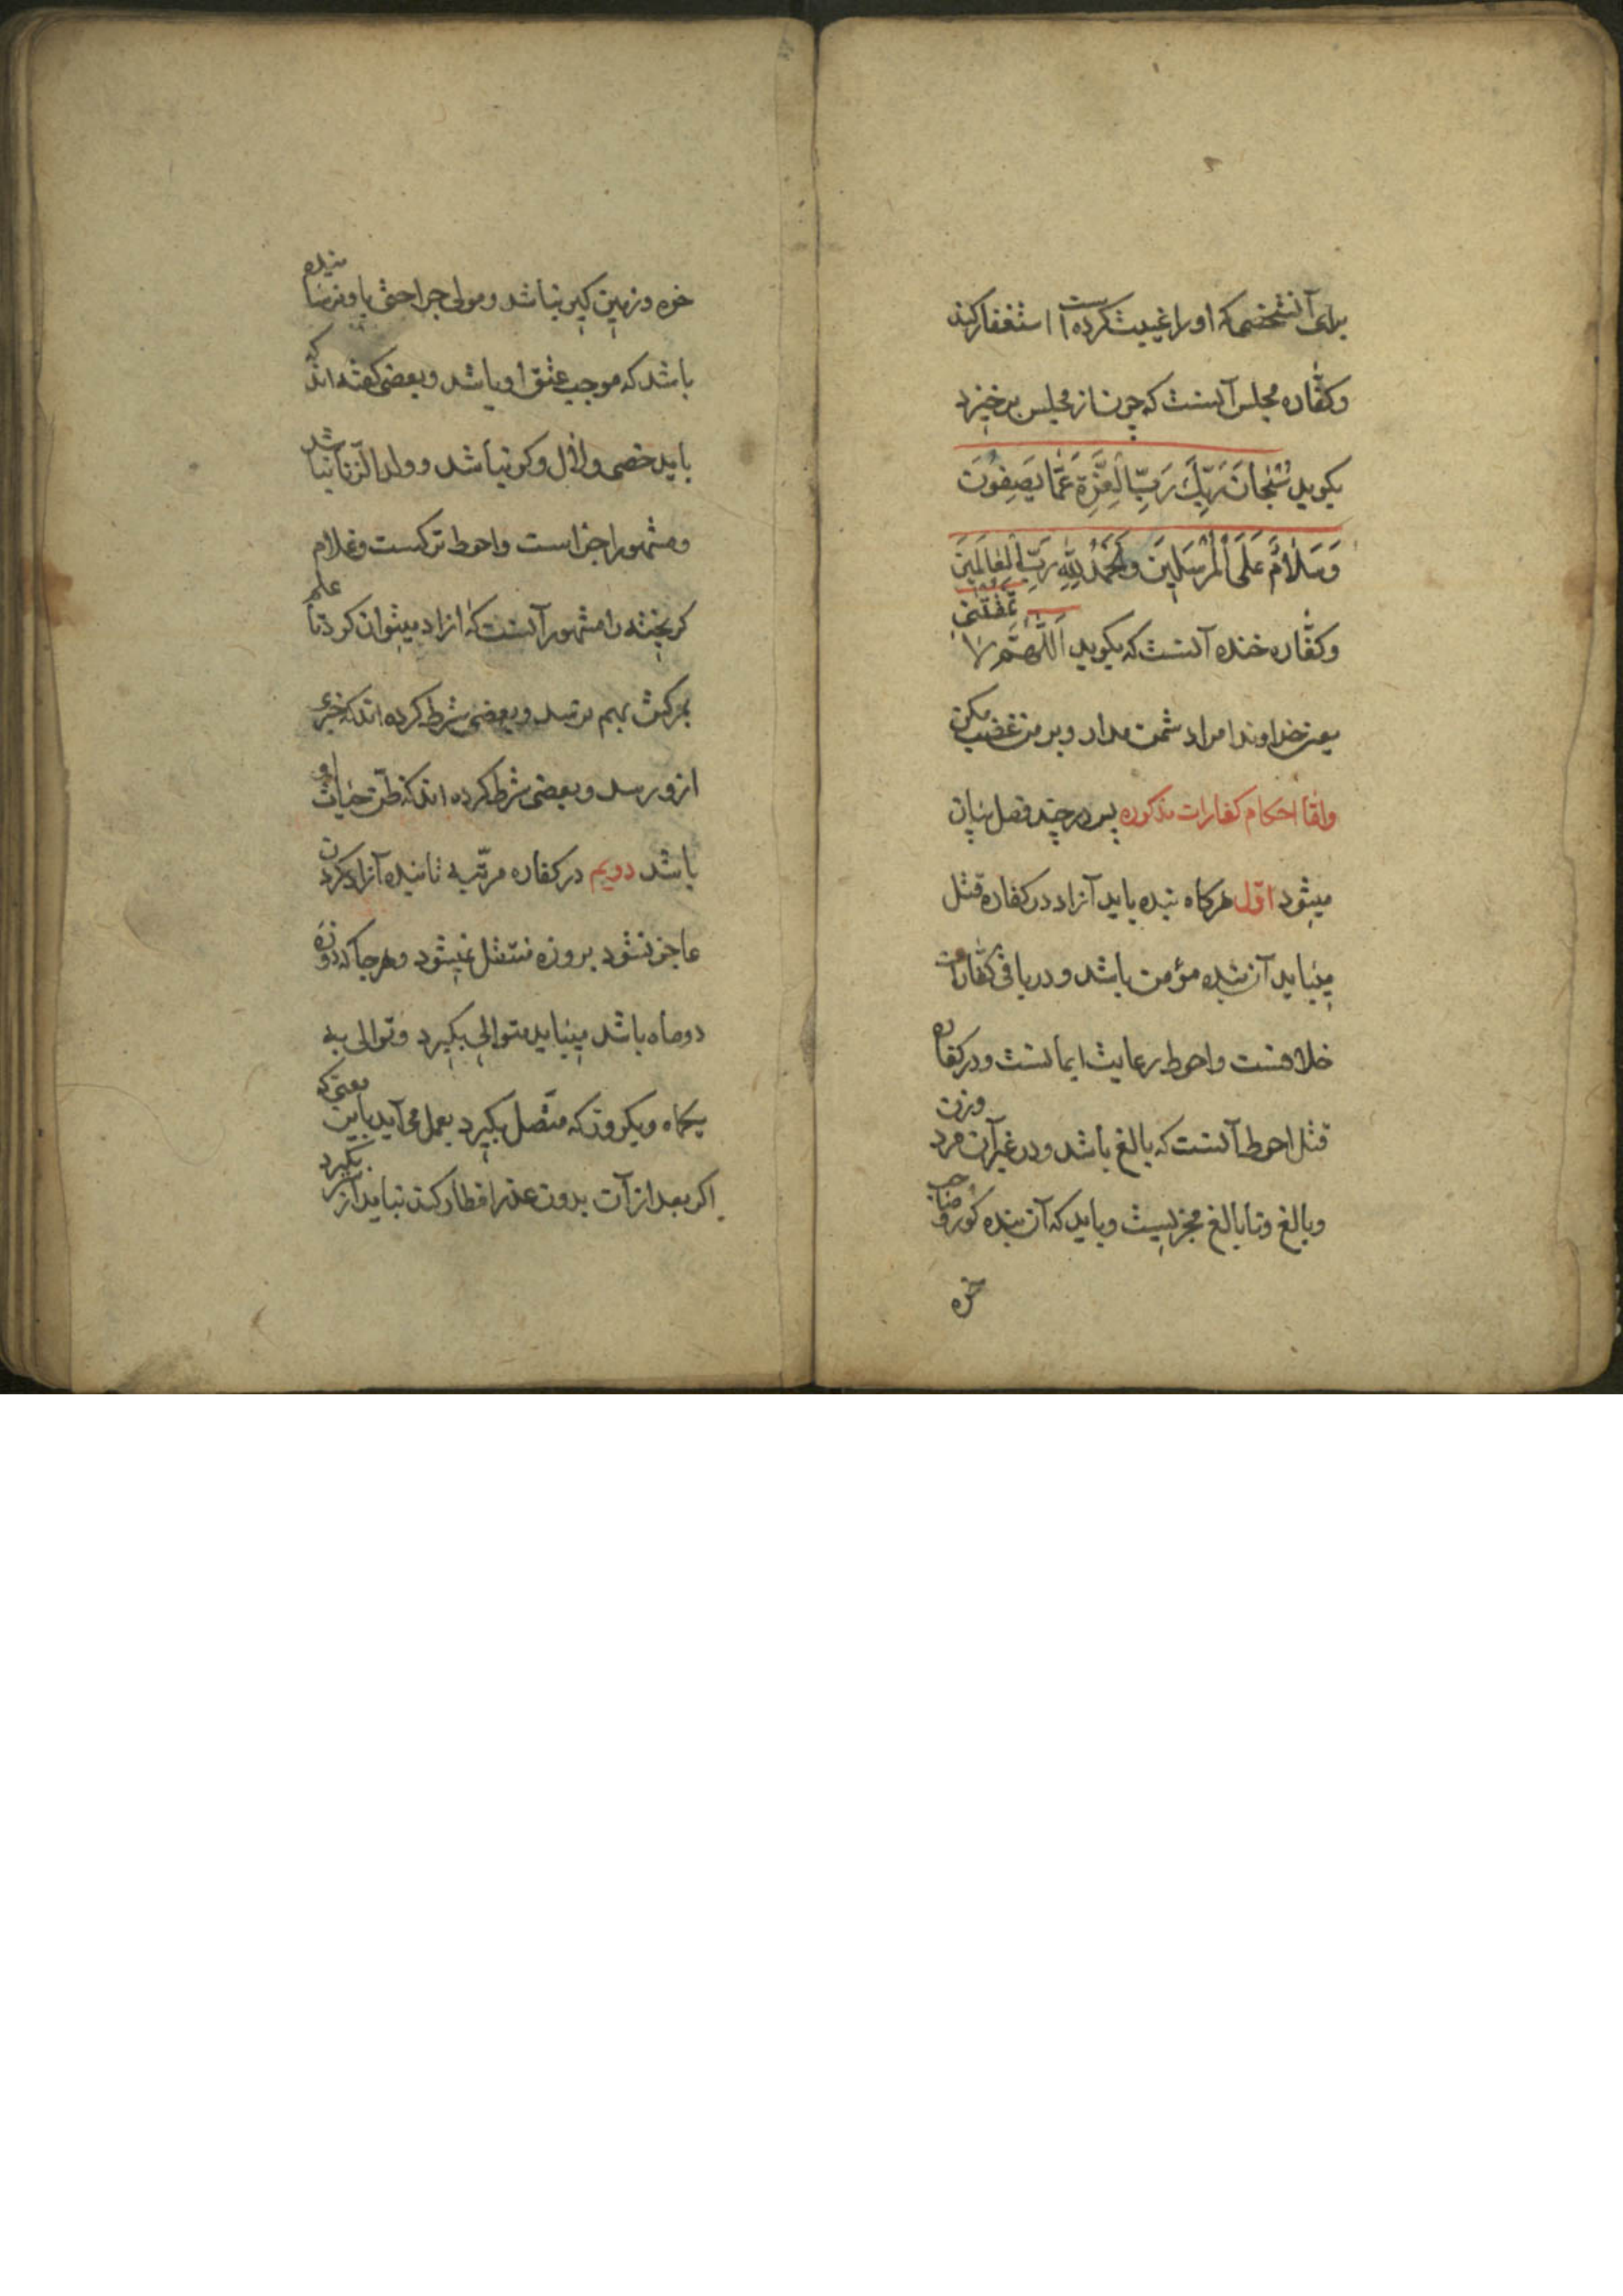 برای آنشخصی که او را غیبت کرده است استغفار کند
و کفّاره مجلس آنست که چون از مجلس برخیزد
بگوید سُبْحانَ رَبِّكَ رَبِّ الْعِزَّةِ عَمَّا يَصِفُونَ
وَسَلامٌ عَلَى الْمُرْسَلِينَ وَالْحَمْدُ لِلّٰهِ رَبِّ الْعالَمِينَ
و کفّاره خنده آنست که بگوید اَللّهُمَّ لا تَمْقُتْنی
یعنی خداوندا مرا دشمن مدار و بر من غضب مکن
و امّا احکام کفارات مذکوره پس در چند فصل بیان
میشود اوّل هرگاه بنده باید آزاد در کفاره قتل
میباید آن بنده مؤمن باشد و در باقی کفّارات
خلافست و احوط رعایت ایمانست و در کفاره
قتل احوط آنست که بالغ باشد و در غیر آن مرد وزن
و بالغ و نابالغ مجزیست و باید که آن بنده کور و صاحب
خوره
خوره و زمین گیر نباشد و مولی جراحتی باو نرسانیده
باشد که موجب عتق او باشد و بعضی گفته اند که
باید خصی و لال و کر نباشد و ولد الزنا نباشد
و مشهور اجزاست و احوط ترکست و غلام
گریخته را مشهور آنست که ازاد میتوان کرد تا علم
بمرگش بهم نرسد و بعضی شرط کرده اند که خبری
ازو رسد و بعضی شرط کرده اند که ظنّ حیات او
باشد دویم در کفاره مرتّبه تا بنده آزاد کردن
عاجز نشود بروزه منتقل نمیشود و هرجا که روزه
دو ماه باشد میباید متوالی بگیرد و توالی به
یکماه و یکروز که متّصل بگیرد بعمل می آید باین معنی که
اگر بعد از آن بدون عذر افطار کند نباید از سر بگیرد